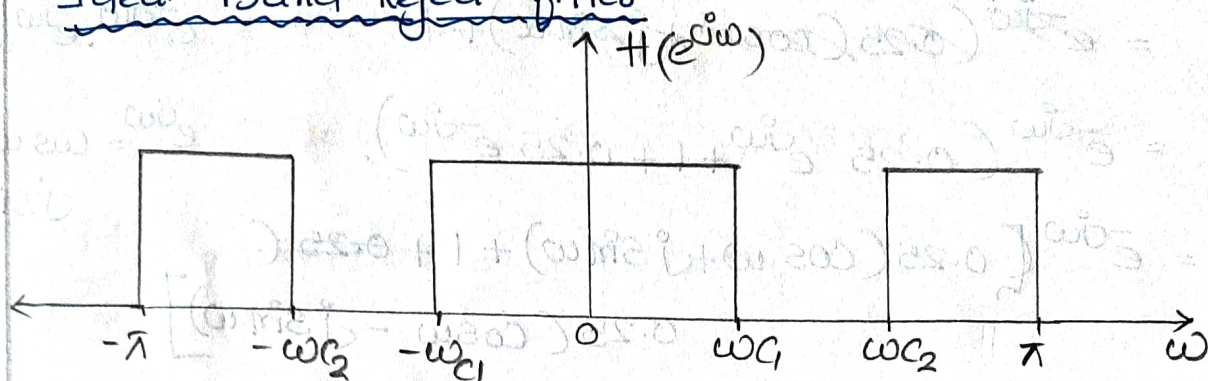 Ideal Band Reject filter
H(e^jω)
-π -ωc2 -ωc1 0 ωc1 ωc2 π ω